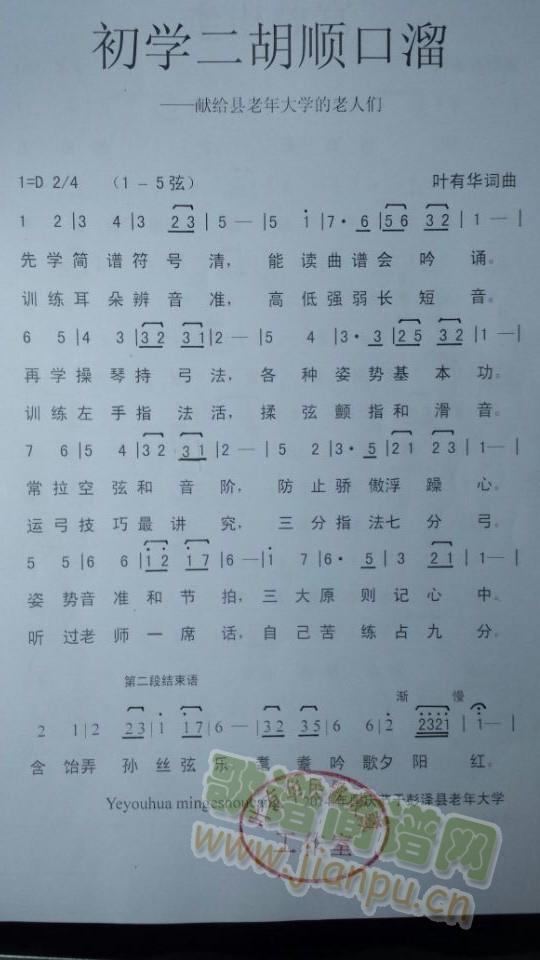 初学二胡顺口溜
——献给县老年大学的老人们
1=D 2/4 （1－5弦） 叶有华词曲
1 2|3 4|3 23|5 —|5 i|7· 6|56 32|1—|
先学简谱符号清，能读曲谱会吟诵。
训练耳朵辨音准，高低强弱长短音。
6 5|4 3|32 31|2—|5 4|3· 3|25 32|1—|
再学操琴持弓法，各种姿势基本功。
训练左手指法活，揉弦颤指和滑音。
7 6|5 4|32 31|2—|5 2|3· 5|21 23|1—|
常拉空弦和音阶，防止骄傲浮躁心。
运弓技巧最讲究，三分指法七分弓。
5 5|6 6|i2 i7|6—|i 7|6· 5|3 21|1—|
姿势音准和节拍，三大原则记心中。
听过老师一席话，自己苦练占九分。
第二段结束语
渐 慢
2 1|2 23|i i7|6—|32 35|6 6|2 2321|i—|
含饴弄孙丝弦乐耄耋吟歌夕阳红。
Yeyouhua 于彭泽县老年大学
工作室
歌谱简谱网
www.jianpu.cn